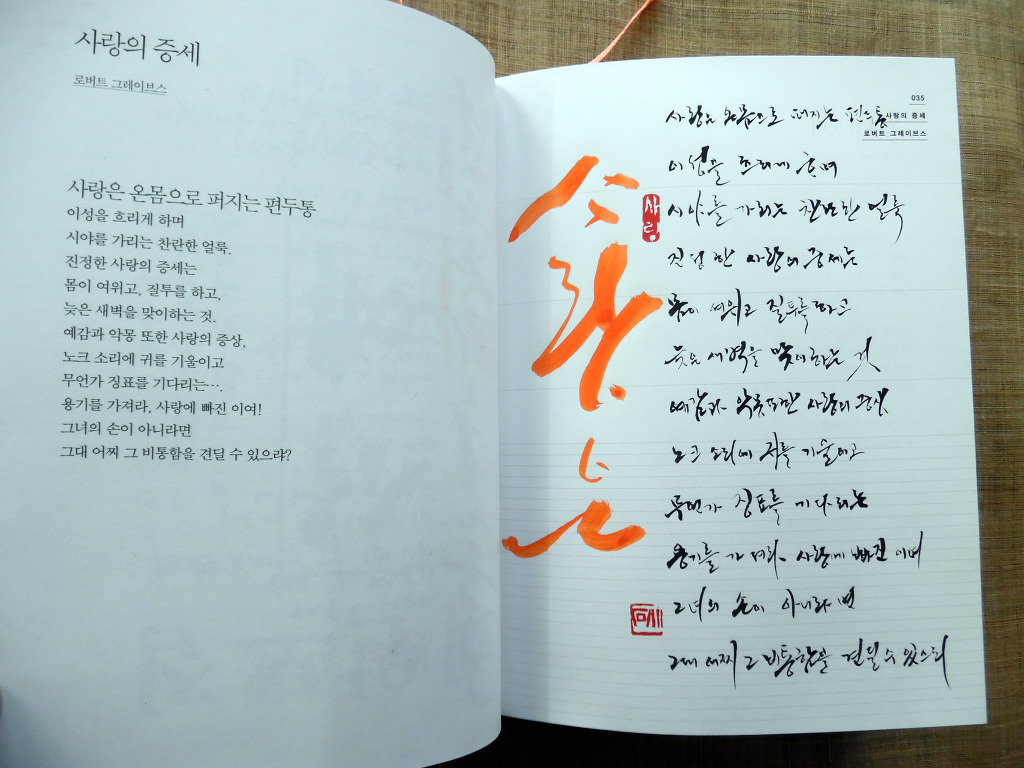 사랑의 증세
로버트 그레이브스
사랑은 온몸으로 퍼지는 편두통
이성을 흐리게 하며
시야를 가리는 찬란한 얼룩.
진정한 사랑의 증세는
몸이 여위고, 질투를 하고,
늦은 새벽을 맞이하는 것.
예감과 악몽 또한 사랑의 증상,
노크 소리에 귀를 기울이고
무언가 징표를 기다리는….
용기를 가져라, 사랑에 빠진 이여!
그녀의 손이 아니라면
그대 어찌 그 비통함을 견딜 수 있으랴?
035
사랑의 증세
로버트 그레이브스
사랑은 온몸으로 퍼지는 편두통
이성을 흐리게 하며
시야를 가리는 찬란한 얼룩
진정한 사랑의 증세는
몸이 여위고 질투를 하고
늦은 새벽을 맞이하는 것
예감과 악몽 또한 사랑의 증상
노크 소리에 귀를 기울이고
무언가 징표를 기다리는
용기를 가져라 사랑에 빠진 이여
그녀의 손이 아니라면
그대 어찌 그 비통함을 견딜 수 있으리
사랑은
사랑